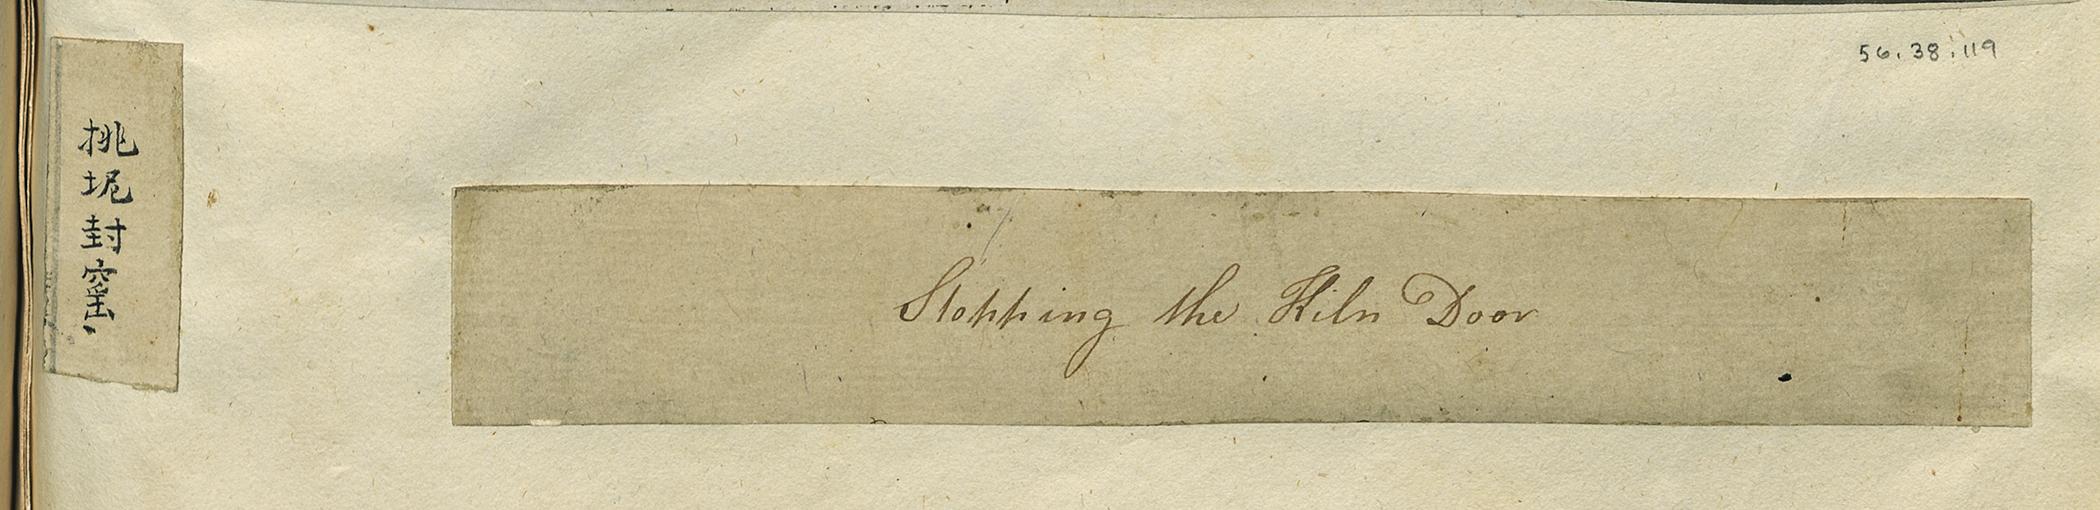 56.38.119
挑坭封窰
Stopping the Kiln Door